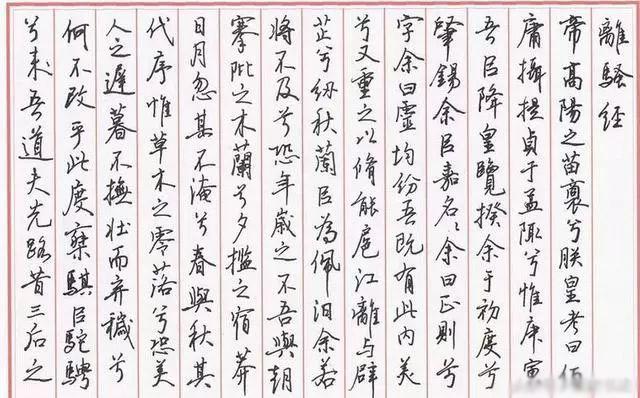 離騷经
帝高陽之苗裔兮朕皇考曰伯
庸攝提貞于孟陬兮惟庚寅
吾㠯降皇覽揆余于初度兮
肇錫余㠯嘉名〻余曰正則兮
字余曰靈均份吾既有此内美
兮又重之以脩能扈江離与辟
芷兮纫秋蘭㠯為佩汨余若
将不及兮恐年歲之不吾與朝
搴阰之木蘭兮夕搵之宿莽
日月忽其不淹兮春與秋其
代序惟草木之零落兮恐美
人之遲暮不撫壮而弃穢兮
何不改乎此度椉騏㠯駝騁
兮来吾道夫先路昔三后之